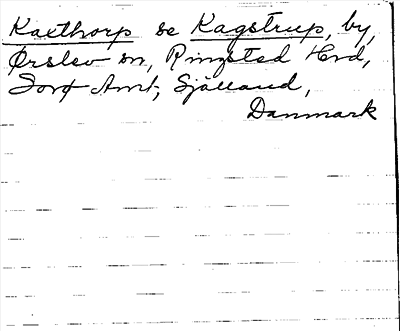 Kaxthorp se Kagstrup, by,
Ørslev sn, Ringsted Hrd,
Sorø Amt, Själland,
Danmark